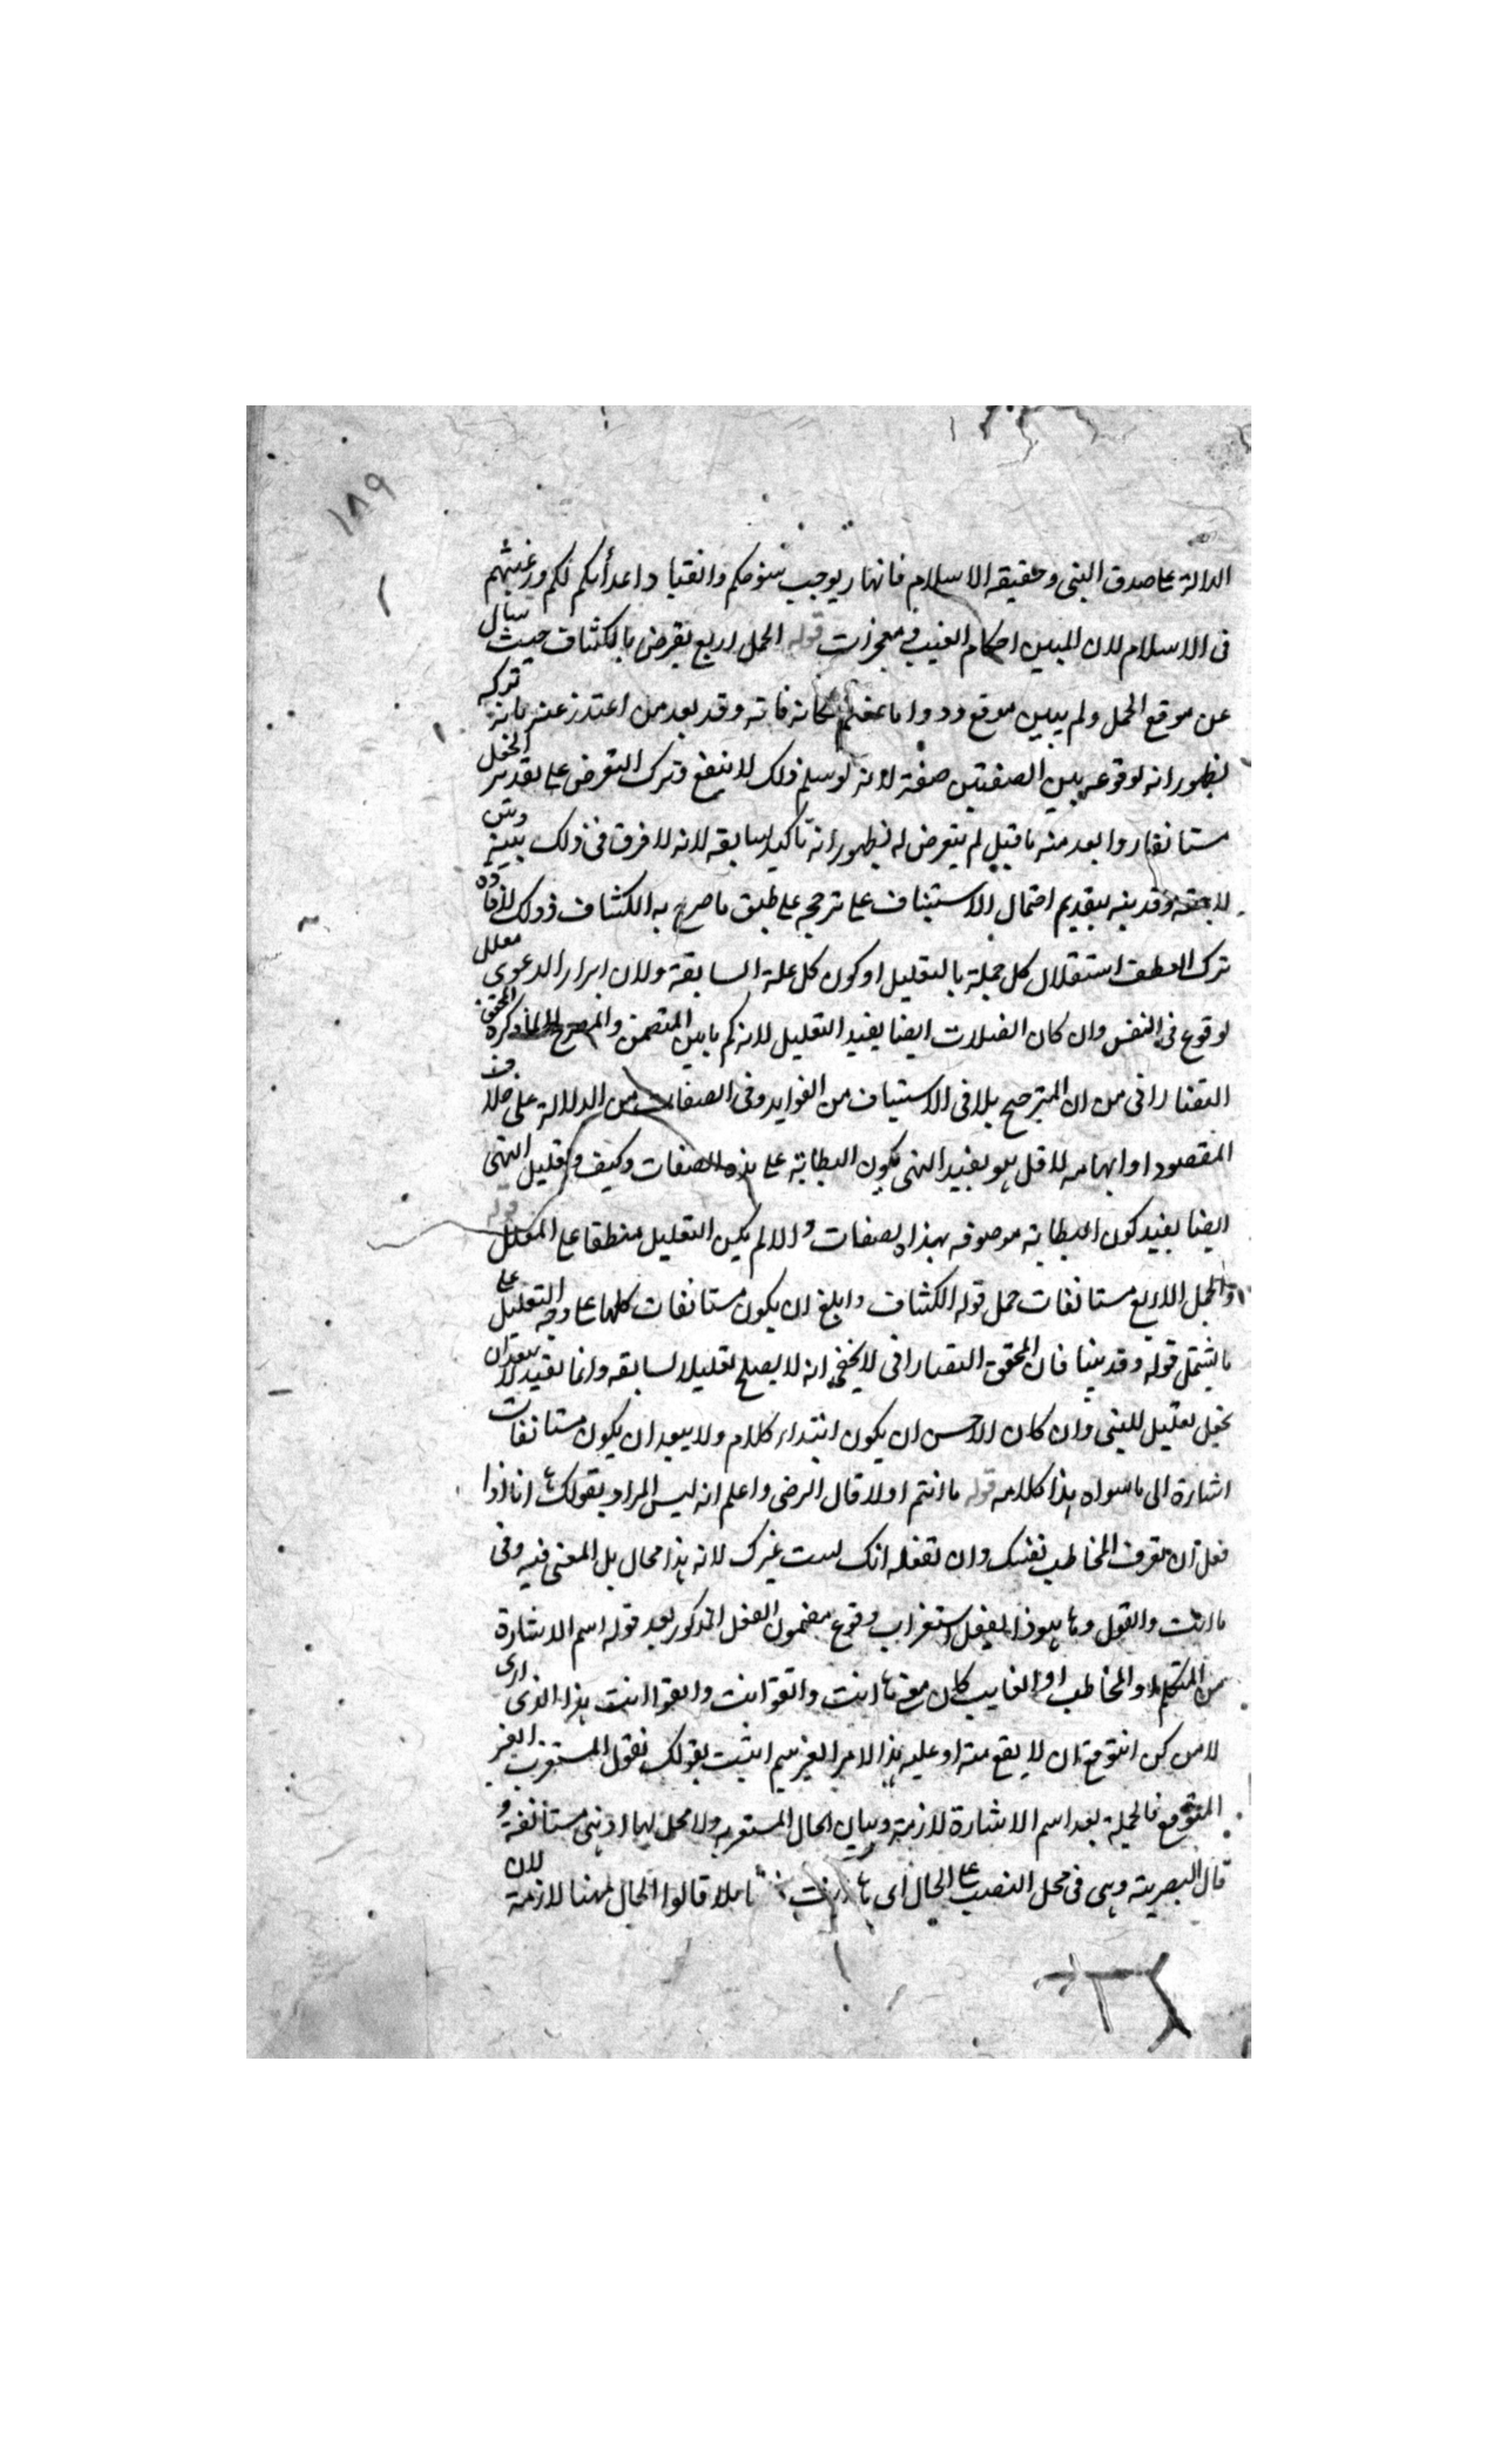 ١٨٩
الدالة على صدق النبى وحقيقه الاسلام فانها يوجب وانقيا د اعدأىكم لكم ورغبتهم
فى الاسلام لان المبين احكام الغيب فى معجزات قوله الجمل اربع يقرض بالكشاف حيث سأل
عن موقع الجمل ولم يبين موقع ودوا ما عنتم كانه فاته وقد بعد من اعتذر عنه بانه تركه
لظهور انه لوقوعه بين الصفتين صفة لانه لو سلم ذلك لا ينفع فى ترك التعرض على تقدير الجمل
مستانفا وابعد منه ما قيل لم يتعرض له لظهور انه تاكيد لسابقه لانه لا فرق فى ذلك بينه وبين
لاحقه وقد نبه بتقديم احتمال الاستيناف على ترجحه على طبق ما صرح به الكشاف وذلك لافاده
ترك العطف استقلال كل جملة بالتعليل او كون كل علة السابقة ولان ابراز الدعوى معلل
اوقع فى النفس وان كان الصلات ايضا يفيد التعليل لانه كم ما بين المتضمن والمصرح ذكره المحقق
التفتازانى من ان المترجح بلا فى الاستيناف من الفوايد وفى الصفات من الدلالة على خلاف
المقصود او ايهامه لا قل وهو تقييد النهى بكون البطانة على هذه الصفات وكيف وتعليل النهى
ايضا يفيد كون البطانه موصوفه بهذا الصفات والا لم يكن التعليل منطقا على المعلل قوله
والجمل الاربع مستانفات حمل قوله الكشاف وابلغ ان يكون مستانفات كلها على وجه التعليل على
ما يشتمل قوله وقد بينا فان المحقق التفتازانى لا يخفى انه لا يصلح تعليلا لسابقه وانما يفيد لا يبعد ان
يجعل تعليل للنهى وان كان الاحسن ان يكون ابتداء كلام ولا يبعد ان يكون مستانفات
اشارة الى ما سواه هذا كلامه قوله ها انتم اولا قال الرضى واعلم انه ليس المراد بقولك ها انا ذا
فعل ان تعرف المخاطب نفسك وان تعلمه انك لست غيرك لانه هذا محال بل المعنى فيه وفى
ها انت ذا تقول وها هو ذا يفعل استغراب وقوع مضمون الفعل المذكور بعد قوله اسم الاشارة
من المتكلم او المخاطب او الغايب كان معنى ها انت ذا تقول انت هذا الذى ارى
لا من كن اتوقع ان لا يقع منه او عليه هذا الامر الغريب ثم اثبت بقولك تقول المستغرب الغير
المتوقع فالجملة بعد اسم الاشارة لازمة وبيان الحال المستغرب ولا محل لها اذ هى مستانفة و
قال البصرية وهى فى محل النصب على الحال اى ها انت ذا قايلا قالوا الحال ههنا لازمة لان